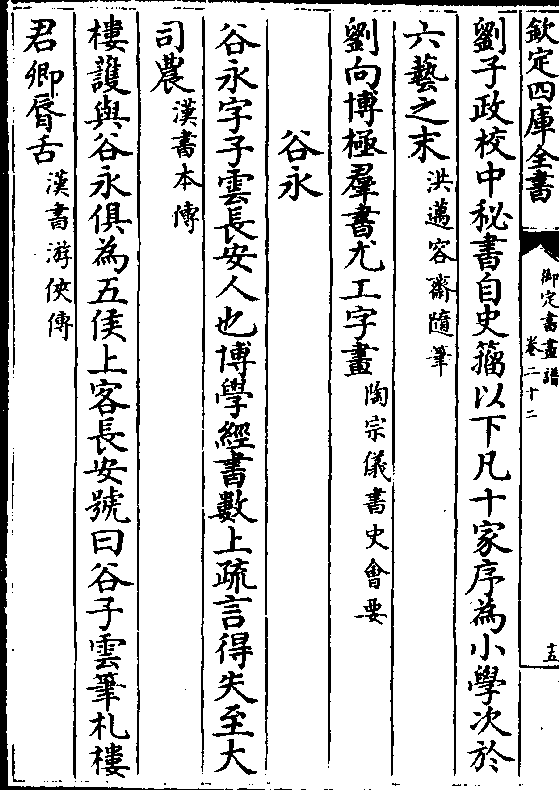 欽定四庫全書
御定書畫譜
卷二十二
十五
劉子政校中秘書自史籀以下凡十家序為小學次於
六藝之末洪邁容齋隨筆
劉向博極羣書尤工字畫陶宗儀書史會要
谷永
谷永字子雲長安人也博學經書數上疏言得失至大
司農漢書本傳
樓護與谷永俱為五侯上客長安號曰谷子雲筆札樓
君卿脣舌漢書游俠傳